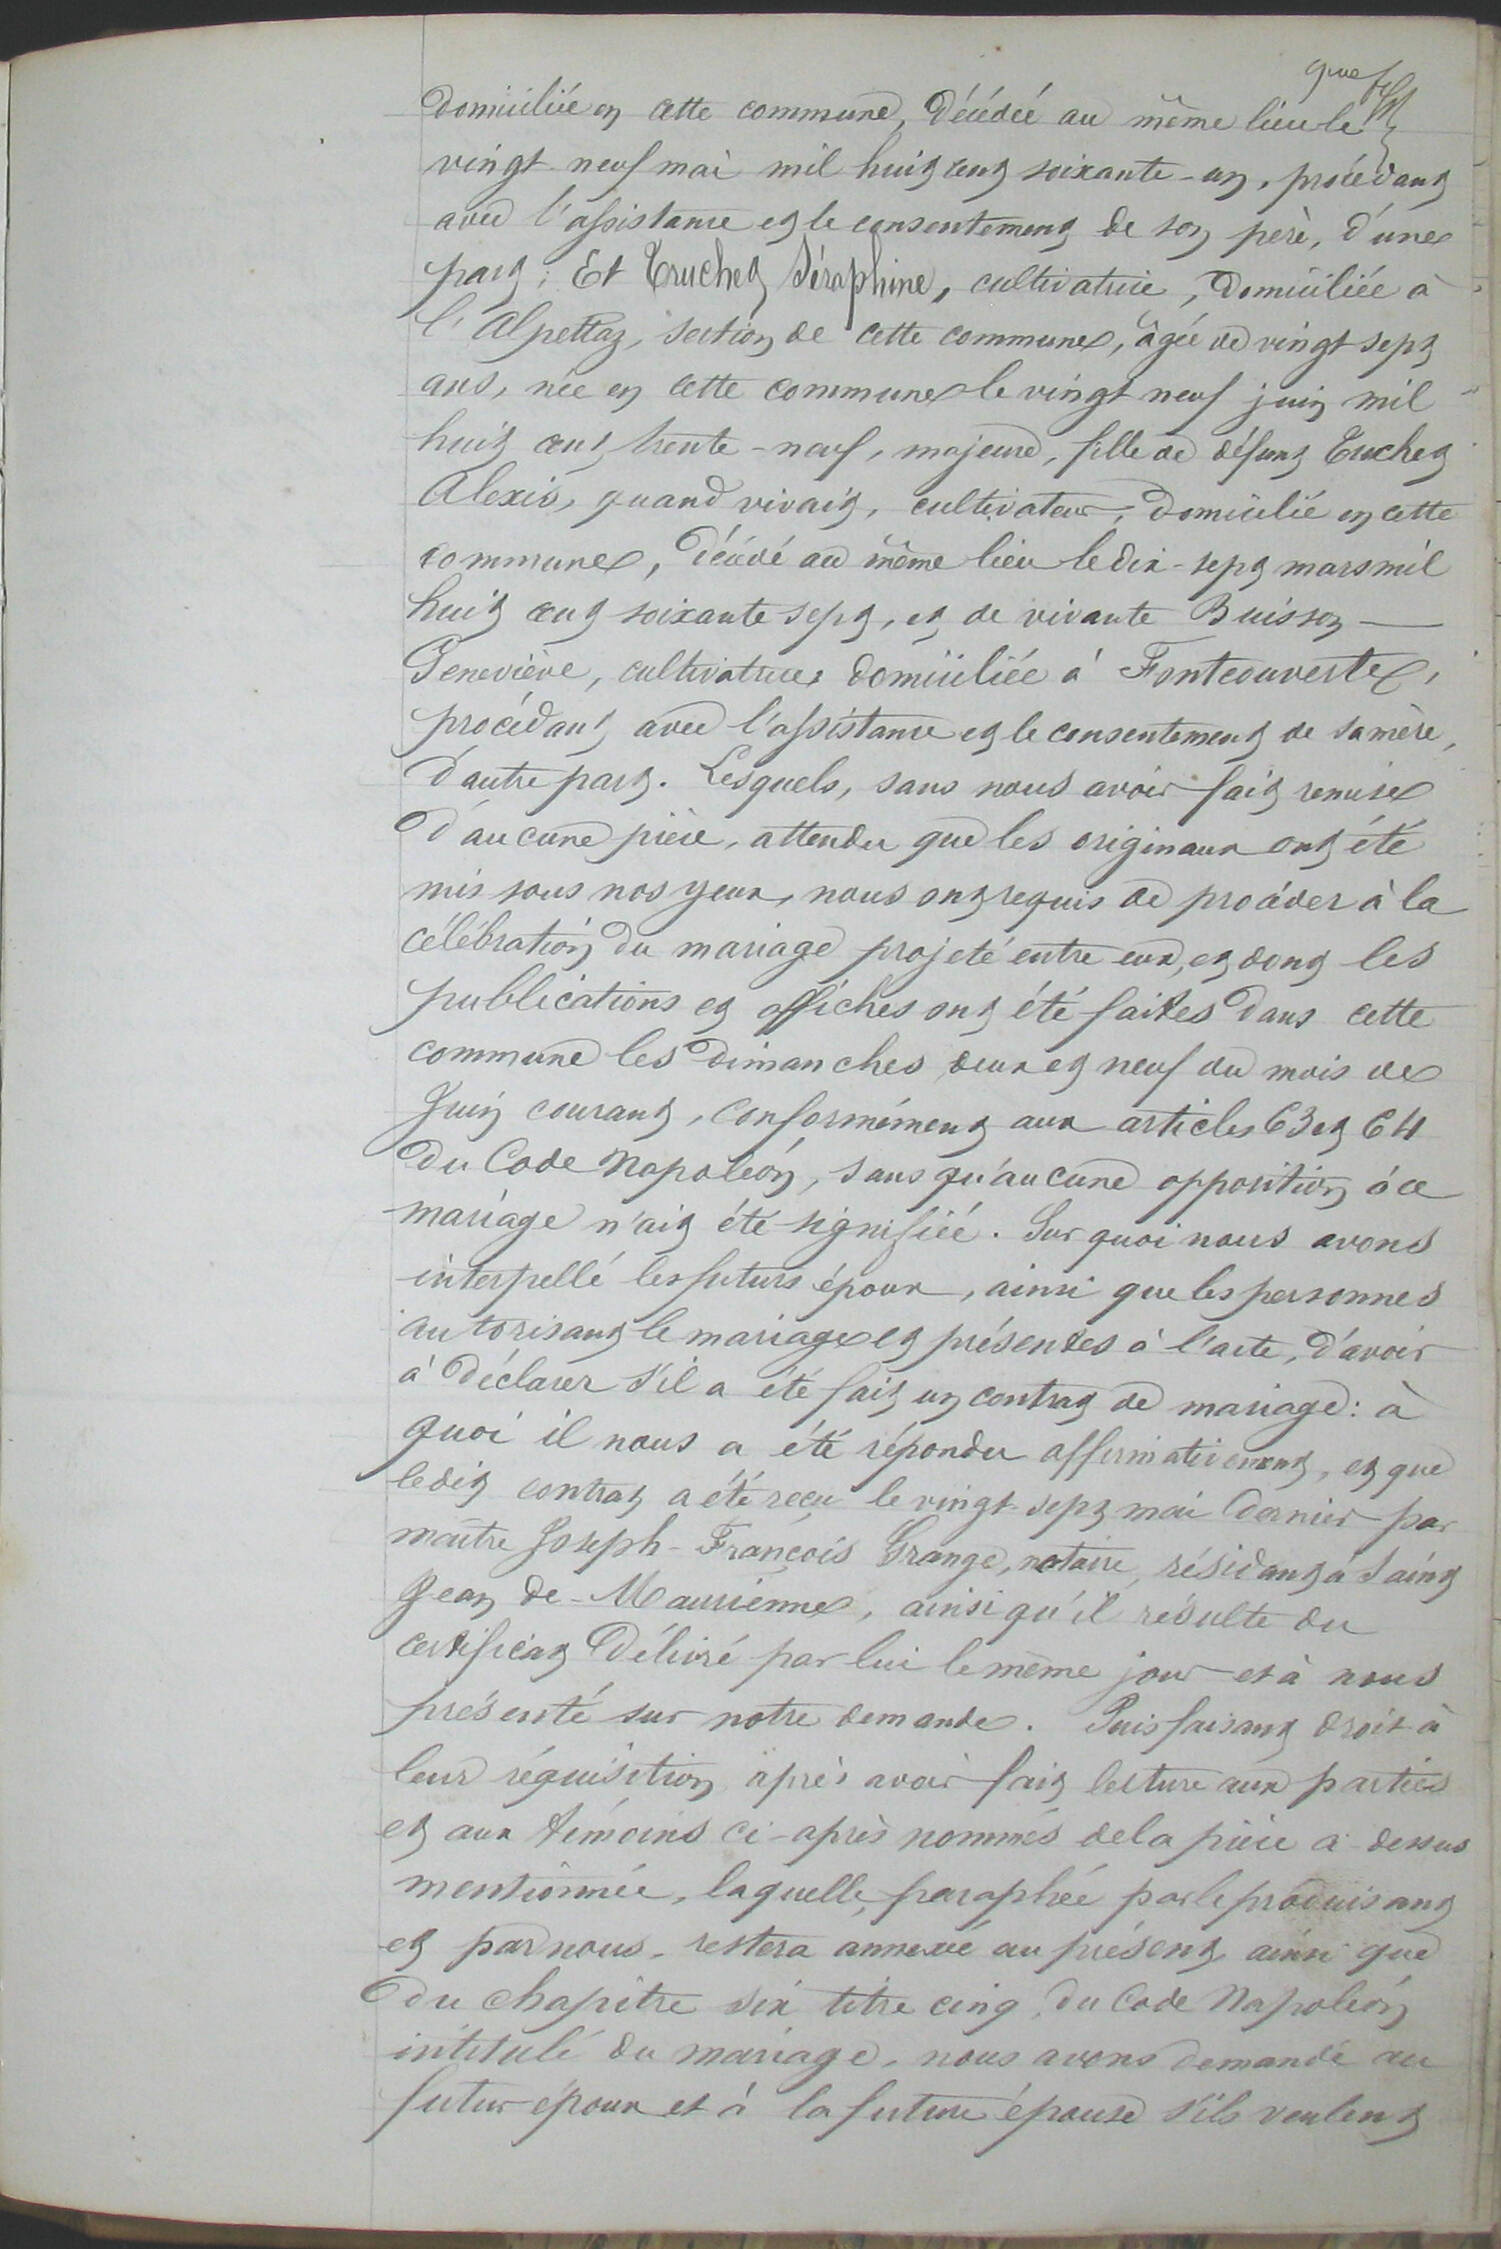 domiciliée en cette commune, décédée au même lieu le
vingt-neuf mai mil huit cent soixante-un, procédant
avec l'assistance et le consentement de son père, d'une
part; Et Truchet Séraphine, cultivatrice, domiciliée à
l'Alpettaz, section de cette commune, âgée de vingt-sept
ans, née en cette commune le vingt neuf juin mil
huit cent trente-neuf, majeure, fille de défunt Truchet
Alexis, quand vivait, cultivateur, domicilié en cette
commune, décédé au même lieu le dix-sept mars mil
huit cent soixante sept, et de vivante Buisson
Geneviève, cultivatrice, domiciliée à Fontcouverte,
procédant avec l'assistance et le consentement de sa mère,
d'autre part. Lesquels, sans nous avoir fait remise
d'aucune pièce, attendu que les originaux ont été
mis sous nos yeux, nous ont requis de procéder à la
célébration du mariage projeté entre eux, et dont les
publications et affiches ont été faites dans cette
commune les dimanches deux et neuf du mois de
Juin courant, conformément aux articles 63 et 64
du Code Napoléon, sans qu'aucune opposition à ce
mariage n'ait été signifiée. Sur quoi nous avons
interpellé les futurs époux, ainsi que les personnes
autorisant le mariage et présentes à l'acte, d'avoir
à déclarer s'il a été fait un contrat de mariage: à
quoi il nous a été répondu affirmativement, et que
ledit contrat a été reçu le vingt-sept mai dernier par
maître Joseph-François Grange, notaire, résidant à Saint
Jean de-Maurienne, ainsi qu'il résulte du
certificat délivré par lui le même jour et à nous
présenté sur notre demande. Puis faisant droit à
leur réquisition après avoir fait lecture aux parties
et aux témoins ci-après nommés de la pièce ci-dessus
mentionnée, laquelle, paraphée par le produisant
et par nous, restera annexée au présent ainsi que
du chapitre six titre cinq, du Code Napoléon
intitulé du mariage, nous avons demandé au
futur époux et à la future épouse s'ils veulent